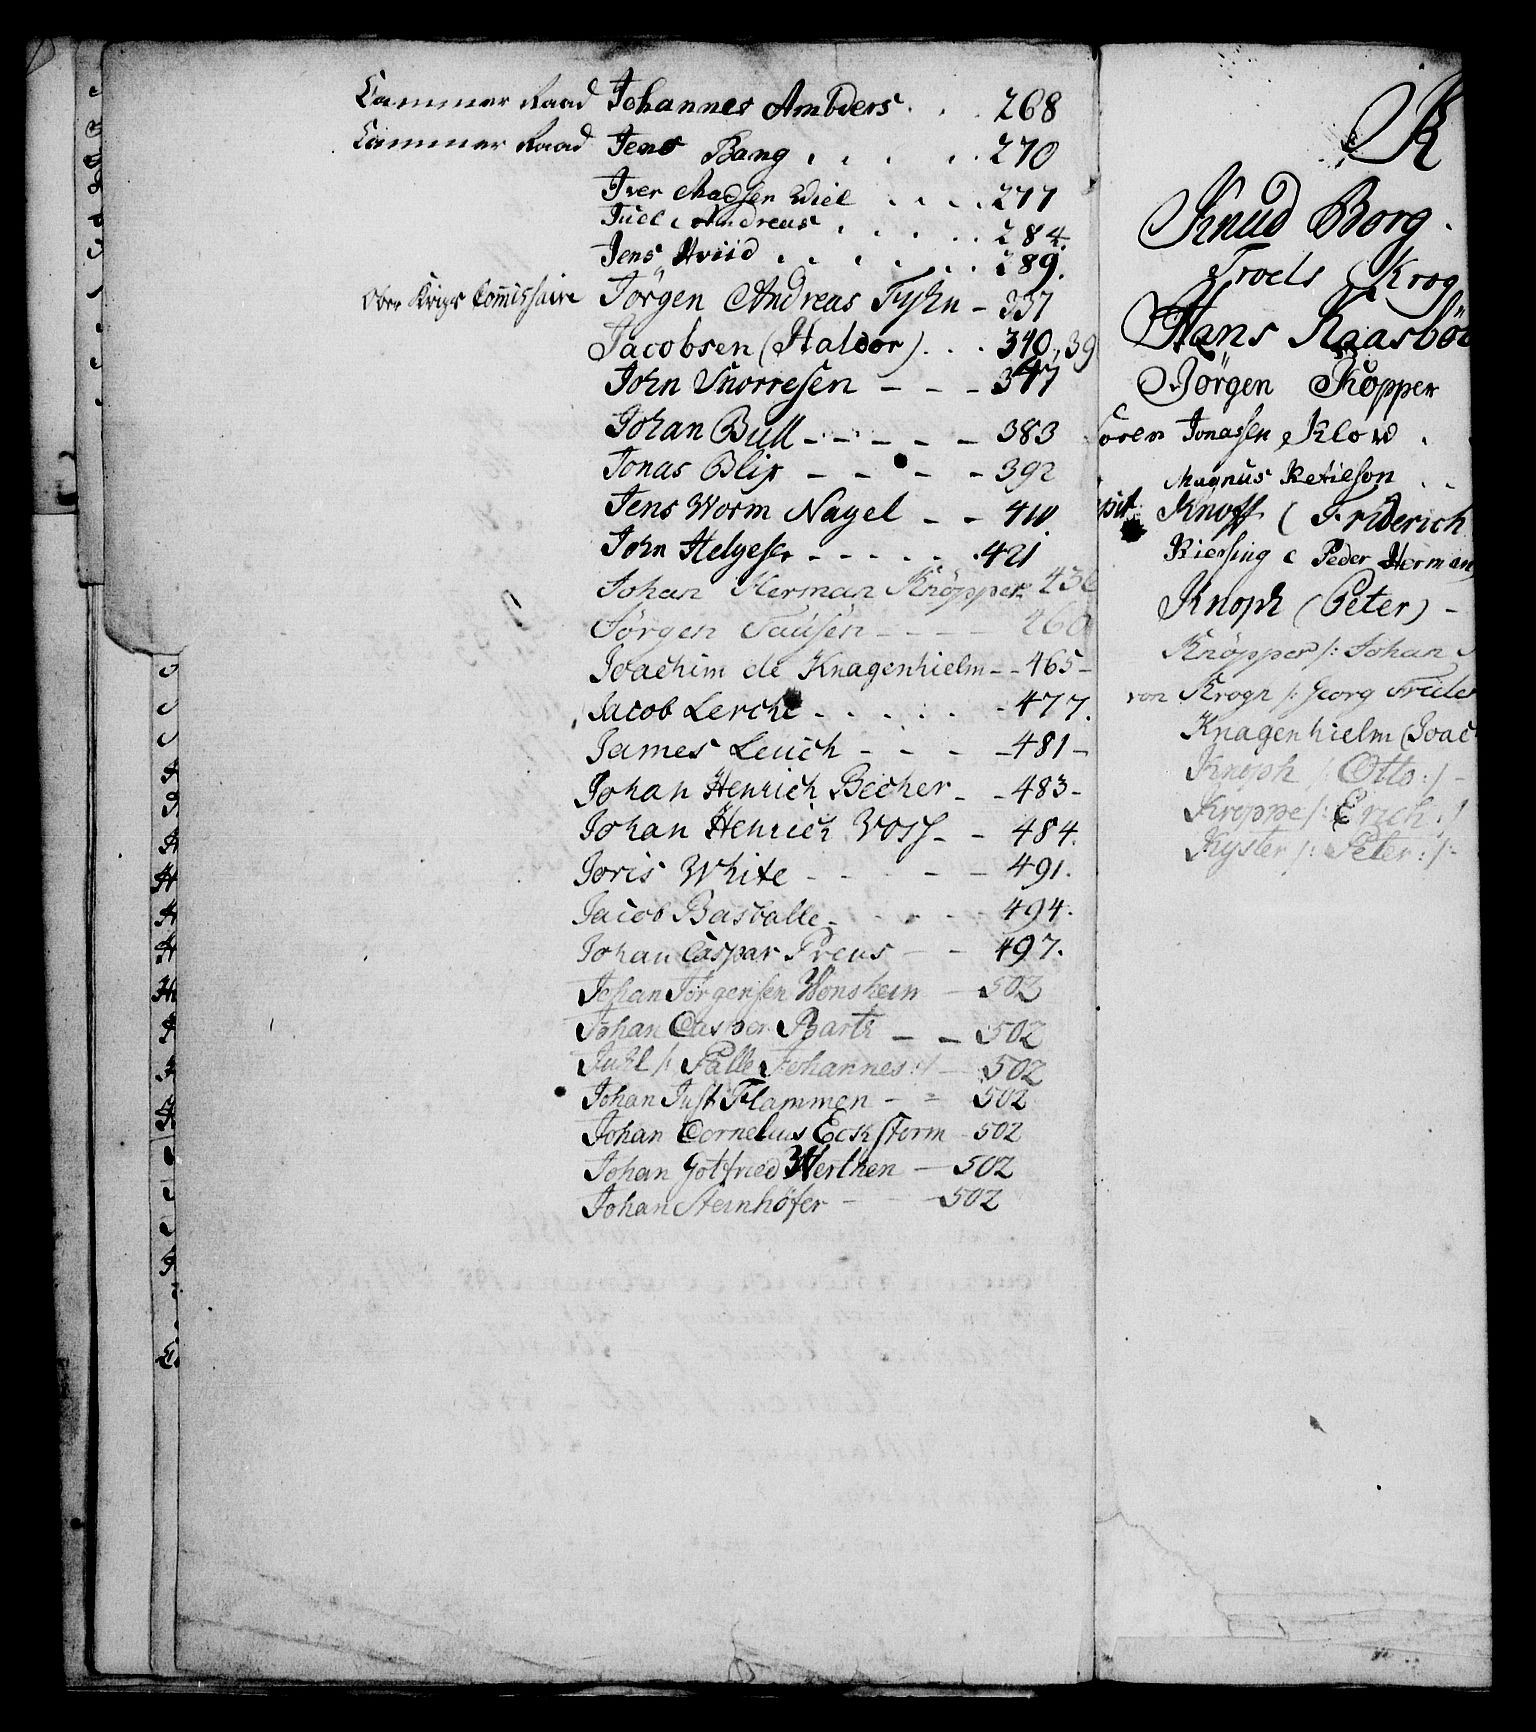 Cammer Raad Johannes Ambders . . . 268
Cammer Raad Jens Bang . . . . . 270
Iver Madsen Wiel . . . . 277
Juel Andreas . . . . . 284.
Jens Hviid . . . . . . . 289.
Ober Krigs Commissaire Jörgen Andreas Tyshn - 337
Jacobsen (Haldor) . . . 340, 39
John Snorresen - - - 347
Johan Bull - - - - - 383
Jonas Blix - - - - 392
Jens Worm Nagel - - 410
John Helgesen - - - - - . 421
Johan Herman Knöpper 436
Jörgen Tausen - - - - 260
Joachim de Knagenhielm - - 465 -
Jacob Lerche - . . . . - 477.
James Leuch - - - - 481 -
Johan Henrich Becher - - 483 -
Johan Henrich Voss - - 484.
Joris White - - - - - 491.
Jacob Basballe - - - - 494.
Johan Caspar Preus - - 497.
Johan Jörgensen Wonsheim - 502
Johan Casper Barth - - 502
Juhl /: Palle Johannes :/ - 502
Johan Just Flammen - - 502
Johan Cornelius Eckstorm - 502
Johan Gotfried Werthen - 502
Johan Steinhöfer - - - 502
K
Knud Borg .
Troels Krog
Hans Kaasböl
Jörgen Kopper
Sören Jonassen Klow .
Magnus Ketilson . .
Knoff ( Friderich
Kiersing ( Peder Herman
Knoph (Peter) -
Knöpper /: Johan
von Krogh /: Georg Frider
Knagenhielm (Joac
Knoph /: Otto :/ -
Kroppe /: Erich :/
Kyster /: Peter :/ -